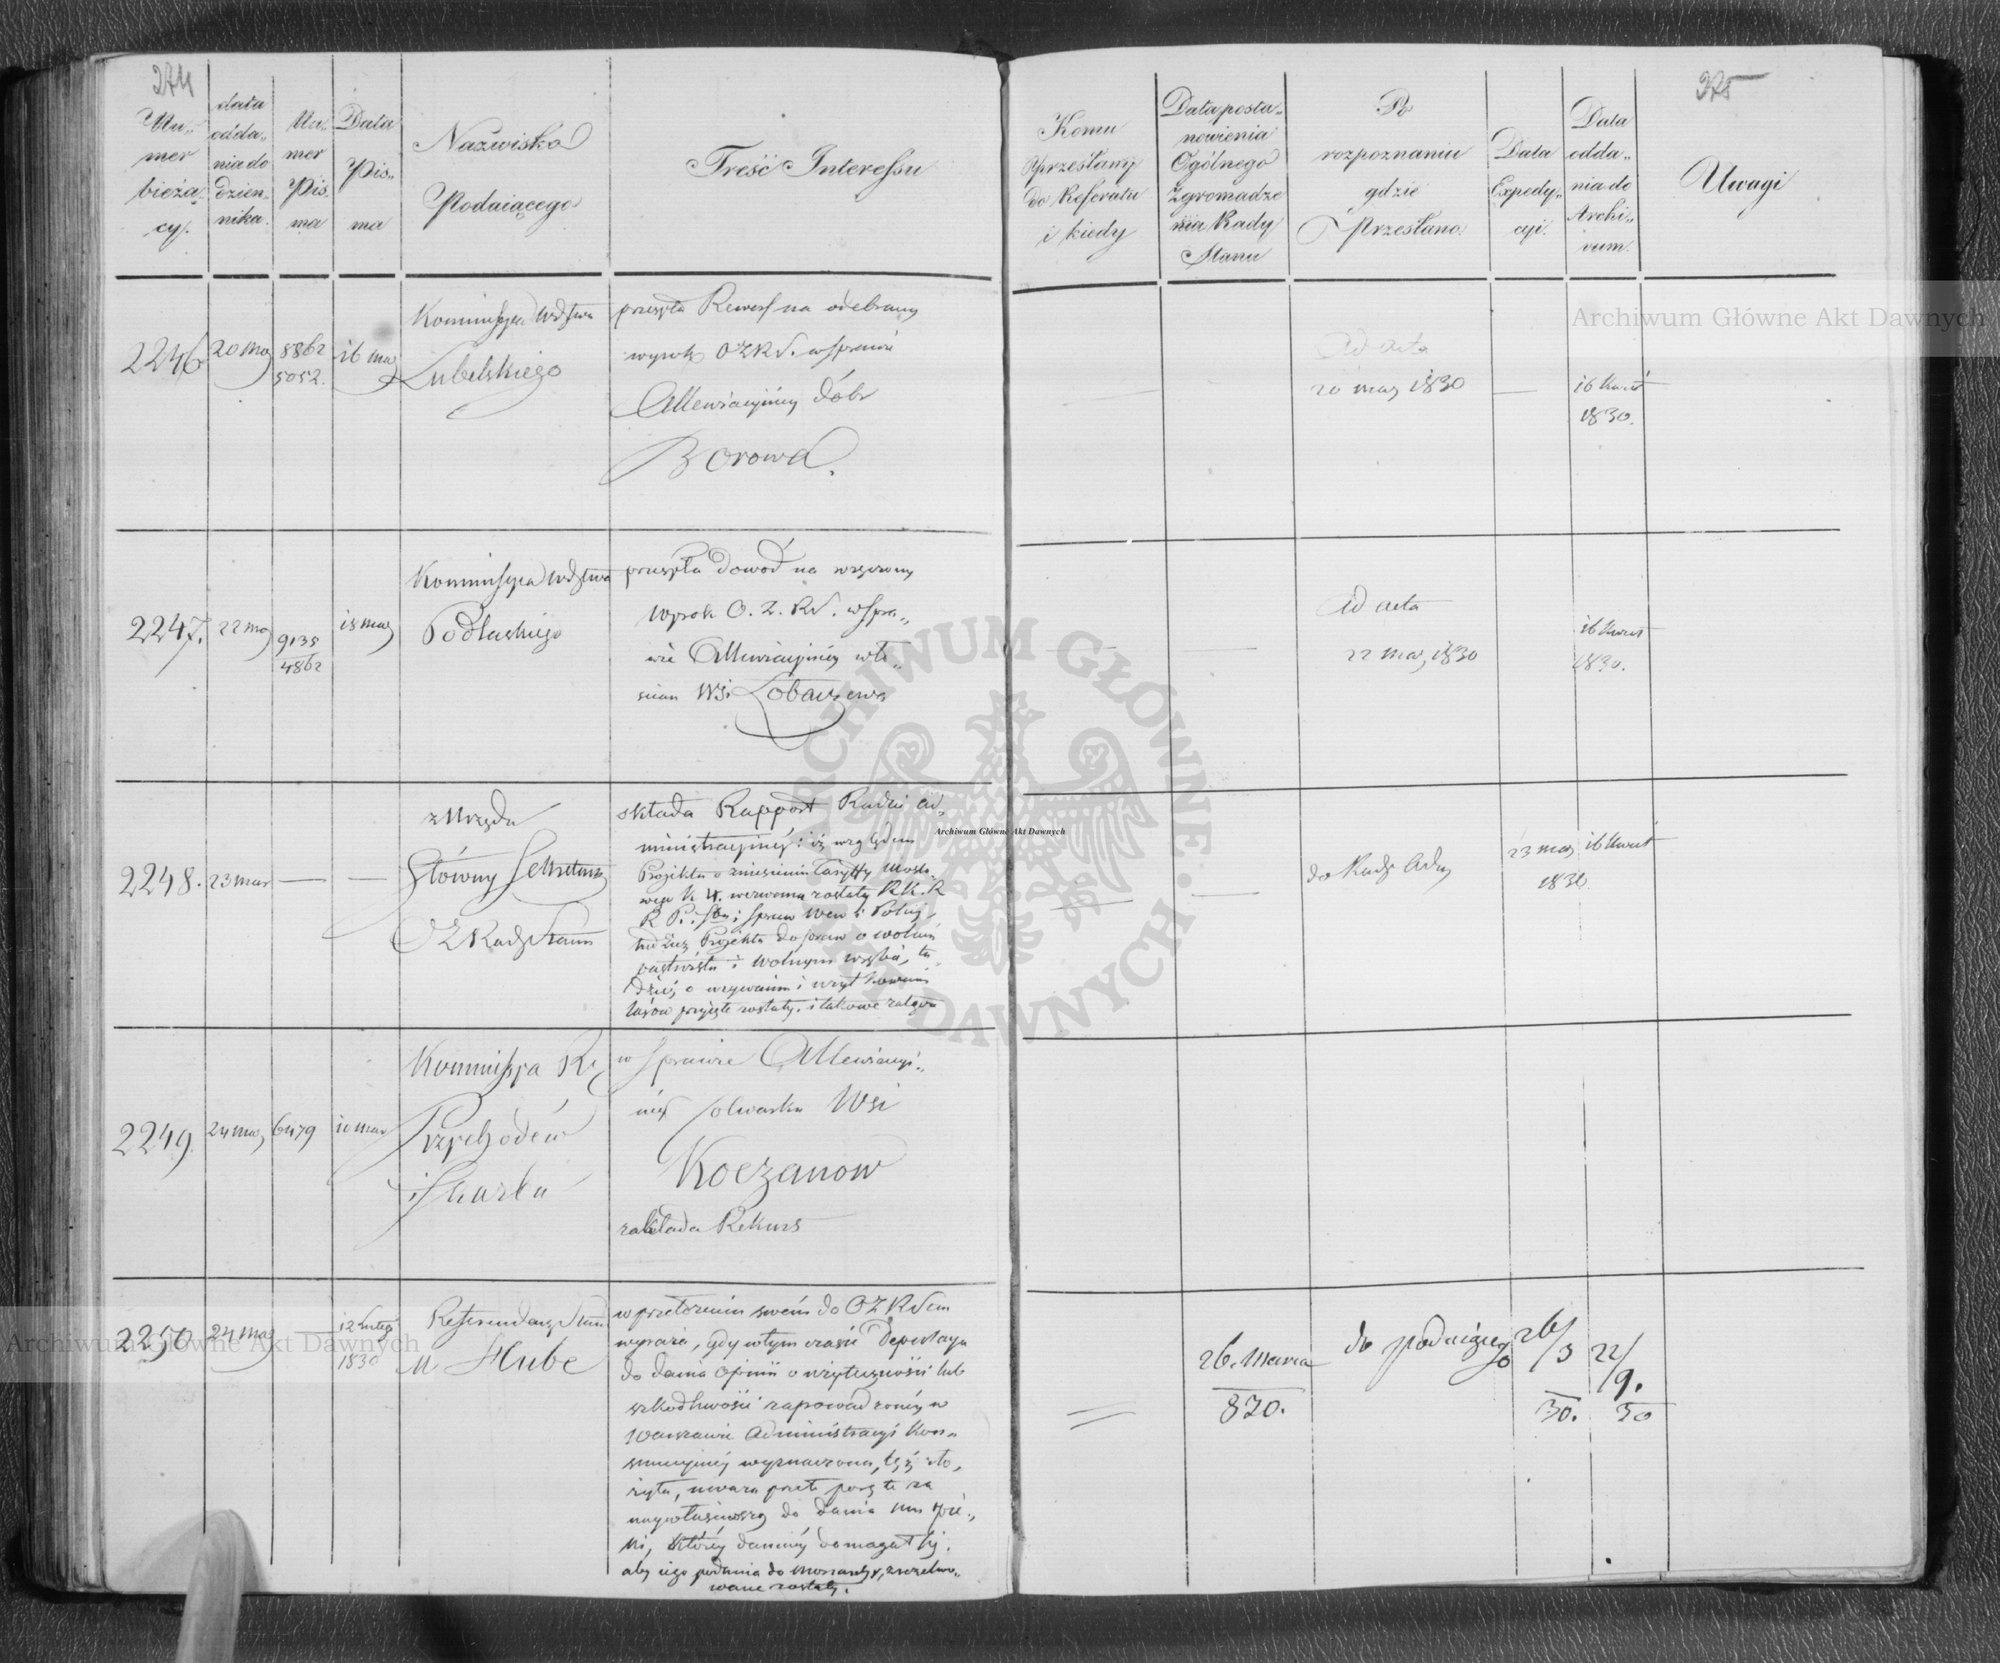 274
Nu-
mer
bieżą-
cy.
data
odda-
nia do
dzien-
nika.
Nu-
mer
Pis-
ma
Data
Pis-
ma
Nazwisko
Podaiącego
Treść Interessu
2246
20 Mar
8862
5052.
16 mar
Kommissya Wdztwa
Lubelskiego
przesyła Rewers na odebrany
wyrok OZRS. w sprawie
Allewiacyjnéy dóbr
Borowa.
2247.
22 Mar
9135
4862
18 mar
Kommissya Wdztwa
Podlaskiego
przesyła dowód na wręczony
Wyrok O. Z. RS. w Spra-
wie Allewiacyjnéy wło-
scian Wsi Łobaczewa
2248.
23 mar
—
—
z Urzędu
Główny Sekretarz
OZ Rady Stanu
składa Rapport Radzie Ad-
ministracyjnéy: iż względem
Projektu o zniesieniu Taryffy Mosto-
wéy N 4. wezwana została KR.
tudzież Projekta do praw o wolném
pastwisku i wolnym wrębie, tu-
dzież o
lasów przyięte zostały. i takowe załącza
2249.
24 mar
6479
10 mar
Kommissya Rz
Przychodów
i Skarbu
w sprawie Allewiacyi-
néy folwarku Wsi
Koczanow
zakłada Rekurs
2250
24 Mar
—
12 Lutego
1830
Referendarz Stanu
M Hube
w przełożeniu swém do OZRStanu
wyraża, gdy w tym czasie Deputacya
do dania Opinii o użyteczności lub
szkodliwości zaprowadzonéy w
Warszawie Administracyi Kon-
sumcyinéy wyznaczona, téż zło-
żyła, uważa przeto porę tę za
naywłaściwszą do dania mu
aby iego podania do Monarchy,
wane zostały.
375
Komu
przesłany
do Referatu
i kiedy
Data posta-
nowienia
Ogólnego
Zgromadze
nia Rady
Stanu
Po
rozpoznaniu
gdzie
Przesłano.
Data
Expedy-
cyi.
Data
odda-
nia do
Archi-
vum.
Uwagi
—
Ad acta
20 mar 1830
—
16 Kwiet
1830.
—
—
Ad acta
22 mar, 1830
16 Kwiet
1830.
—
—
do Rady Adm
23 mar
16 Kwiet
1830.
26. Marca
830.
do podaiącego
26/3
30.
22/9.
30
Archiwum Główne Akt Dawnych
Archiwum Główne Akt Dawnych
Archiwum Główne Akt Dawnych
ARCHIWUM GŁÓWNE AKT DAWNYCH